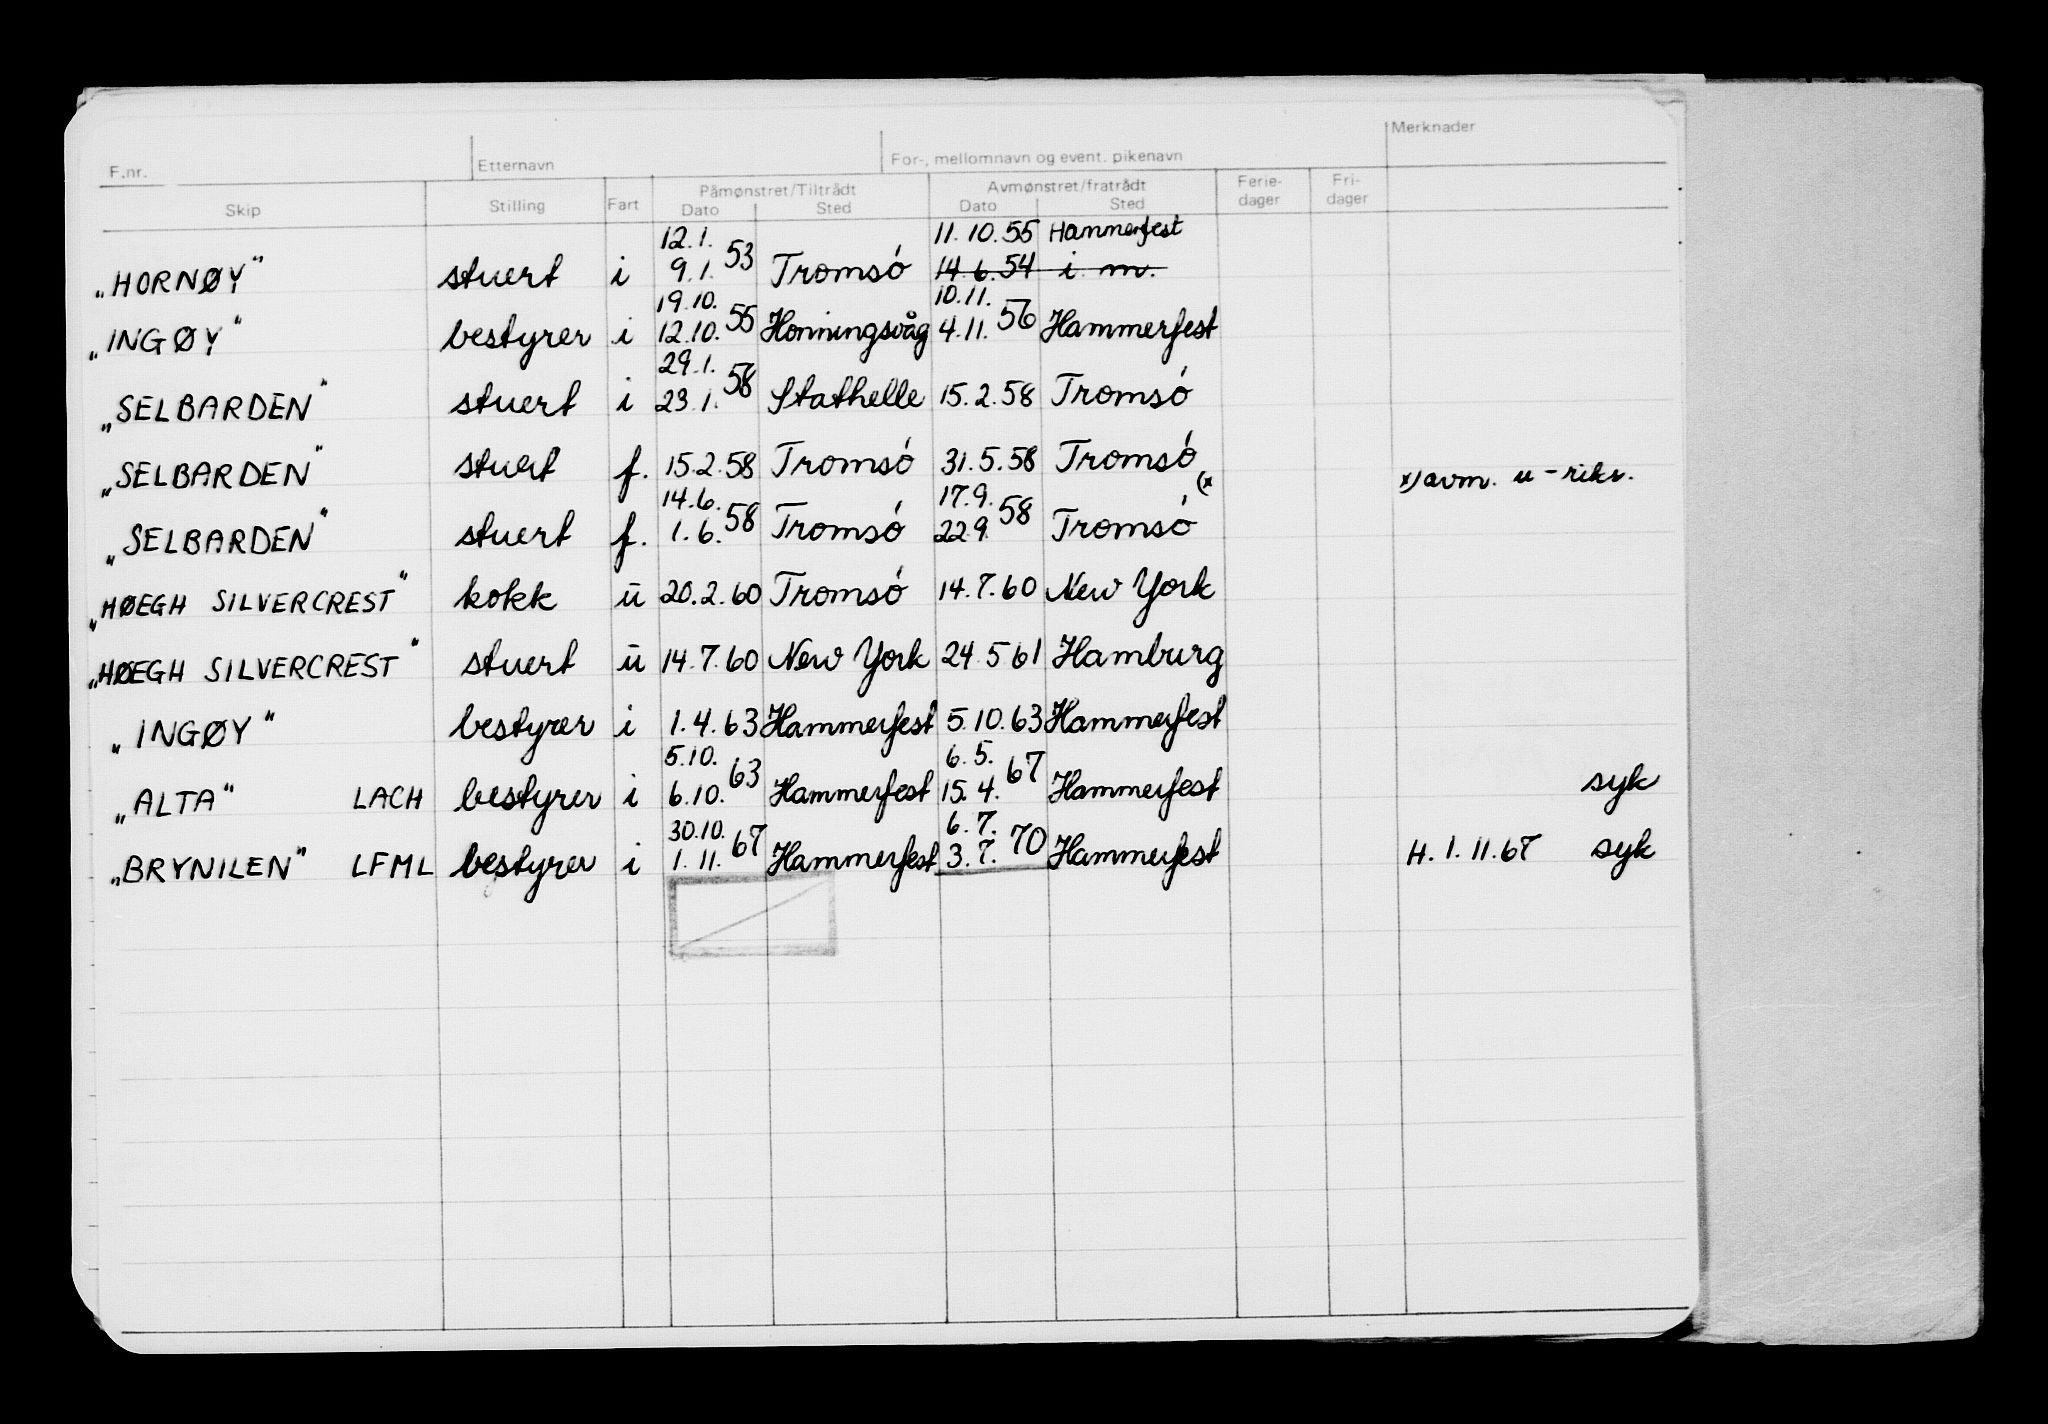 F.nr. Etternavn For-, mellomnavn og event. pikenavn Merknader
Skip Stilling Fart Påmønstret/Tiltrådt Avmønstret/fratrådt Ferie- Fri-
Dato Sted Dato Sted dager dager
12.1. 11.10.55 Hammerfest
„HORNØY" stuert i 9.1. 53 Tromsó ~~14.6.54 i m.~~
19.10. 10.11.
„INGØY" bestyrer i 12.10. 55 Honningsvåg 4.11. 56 Hammerfest
29.1.
„SELBARDEN" stuert i 23.1. 58 Stathelle 15.2.58 Tromsó
„SELBARDEN" stuert f. 15.2.58 Tromsó 31.5.58 Tromsó x) avm. u-riks.
14.6. 17.9. (x
„SELBARDEN" stuert f. 1.6. 58 Tromsó 22.9. 58 Tromsó
„HØEGH SILVERCREST" kokk ū 20.2.60 Tromsó 14.7.60 New York
„HØEGH SILVERCREST" stuert ū 14.7.60 New York 24.5.61 Hamburg
„INGØY" bestyrer i 1.4.63 Hammerfest 5.10.63 Hammerfest
5.10. 6.5.
„ALTA" LACH bestyrer i 6.10. 63 Hammerfest 15.4. 67 Hammerfest syk
30.10. 6.7.
„BRYNILEN" LFML bestyrer i 1.11. 67 Hammerfest 3.7. 70 Hammerfest H. 1.11.67 syk